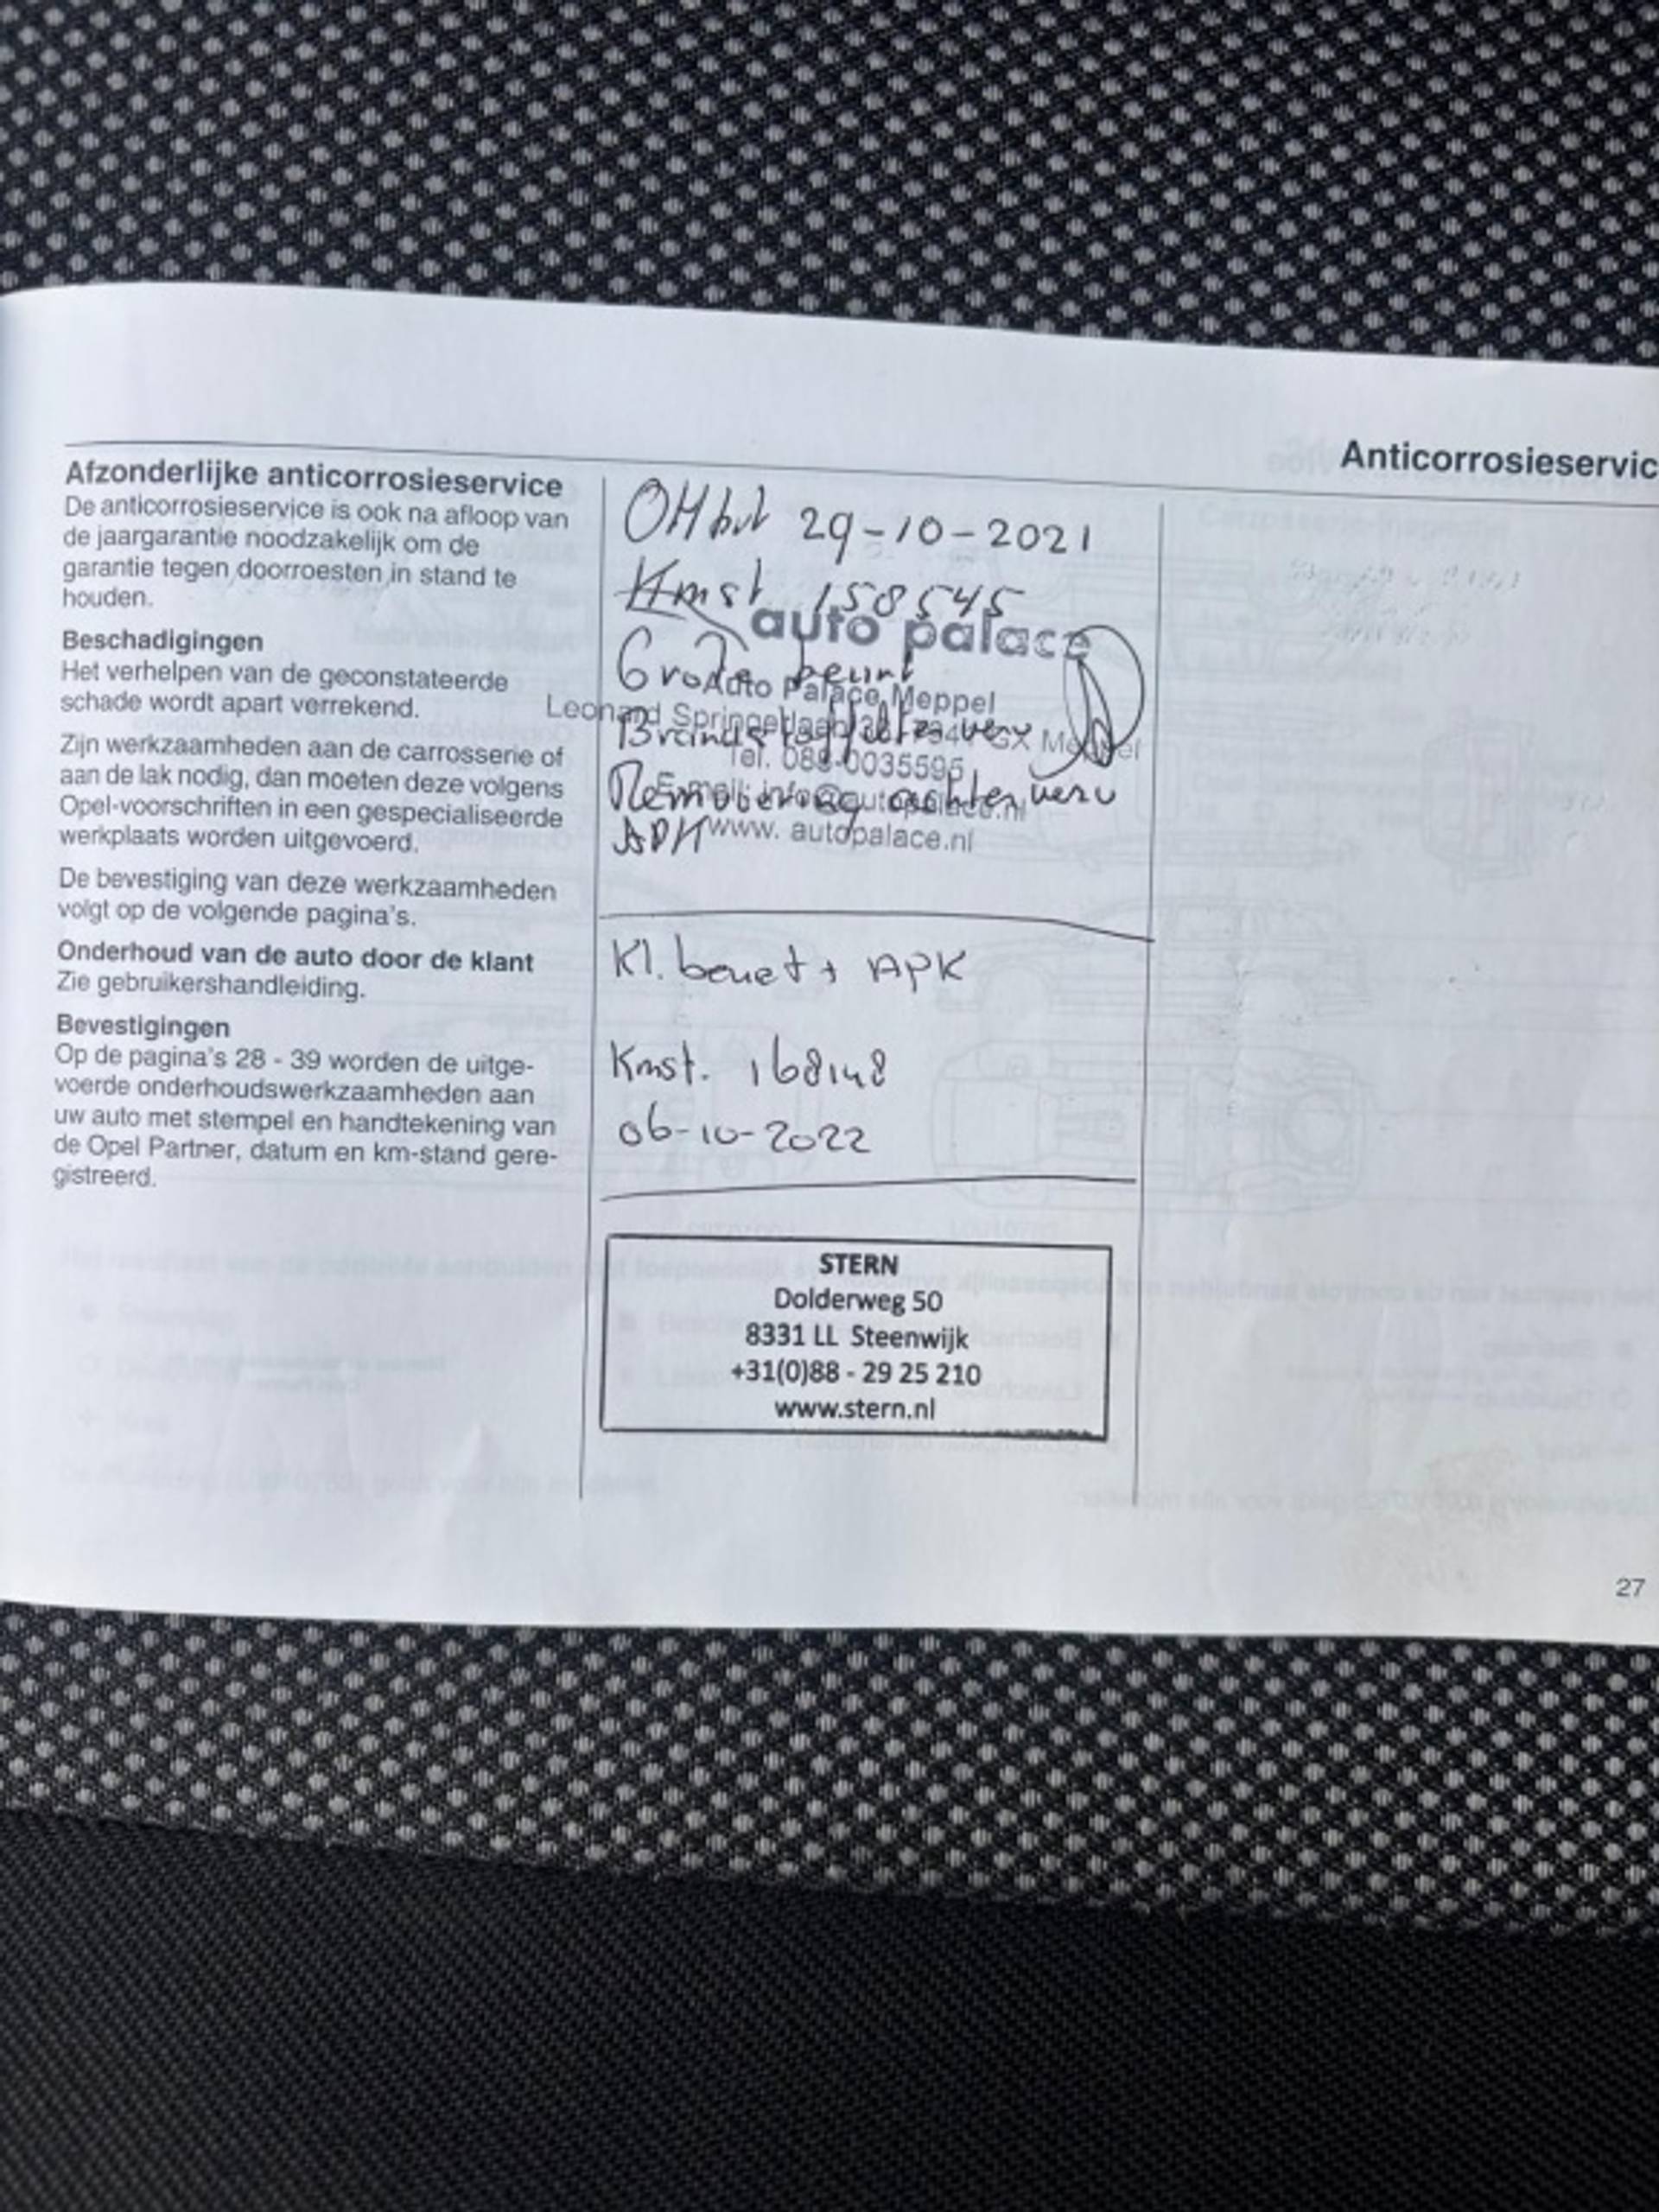 Anticorrosieservic
Afzonderlijke anticorrosieservice
De anticorrosieservice is ook na afloop van
de jaargarantie noodzakelijk om de
garantie tegen doorroesten in stand te
houden.
Beschadigingen
Het verhelpen van de geconstateerde
schade wordt apart verrekend.
Zijn werkzaamheden aan de carrosserie of
aan de lak nodig, dan moeten deze volgens
Opel-voorschriften in een gespecialiseerde
werkplaats worden uitgevoerd.
De bevestiging van deze werkzaamheden
volgt op de volgende pagina's.
Onderhoud van de auto door de klant
Zie gebruikershandleiding.
Bevestigingen
Op de pagina's 28 - 39 worden de uitge-
voerde onderhoudswerkzaamheden aan
uw auto met stempel en handtekening van
de Opel Partner, datum en km-stand gere-
gistreerd.
29-10-2021
Kmst 158545
auto palace
Grote beurt
Auto Palace Meppel
Leonard Springerlaan GX Meppel
Brandstoffilter verv
Tel. 088-0035595
E-mail: info@autopalace.nl
achter verv
APK
www. autopalace.nl
Kl. beurt + APK
Kmst. 168148
06-10-2022
STERN
Dolderweg 50
8331 LL Steenwijk
+31(0)88 - 29 25 210
www.stern.nl
27